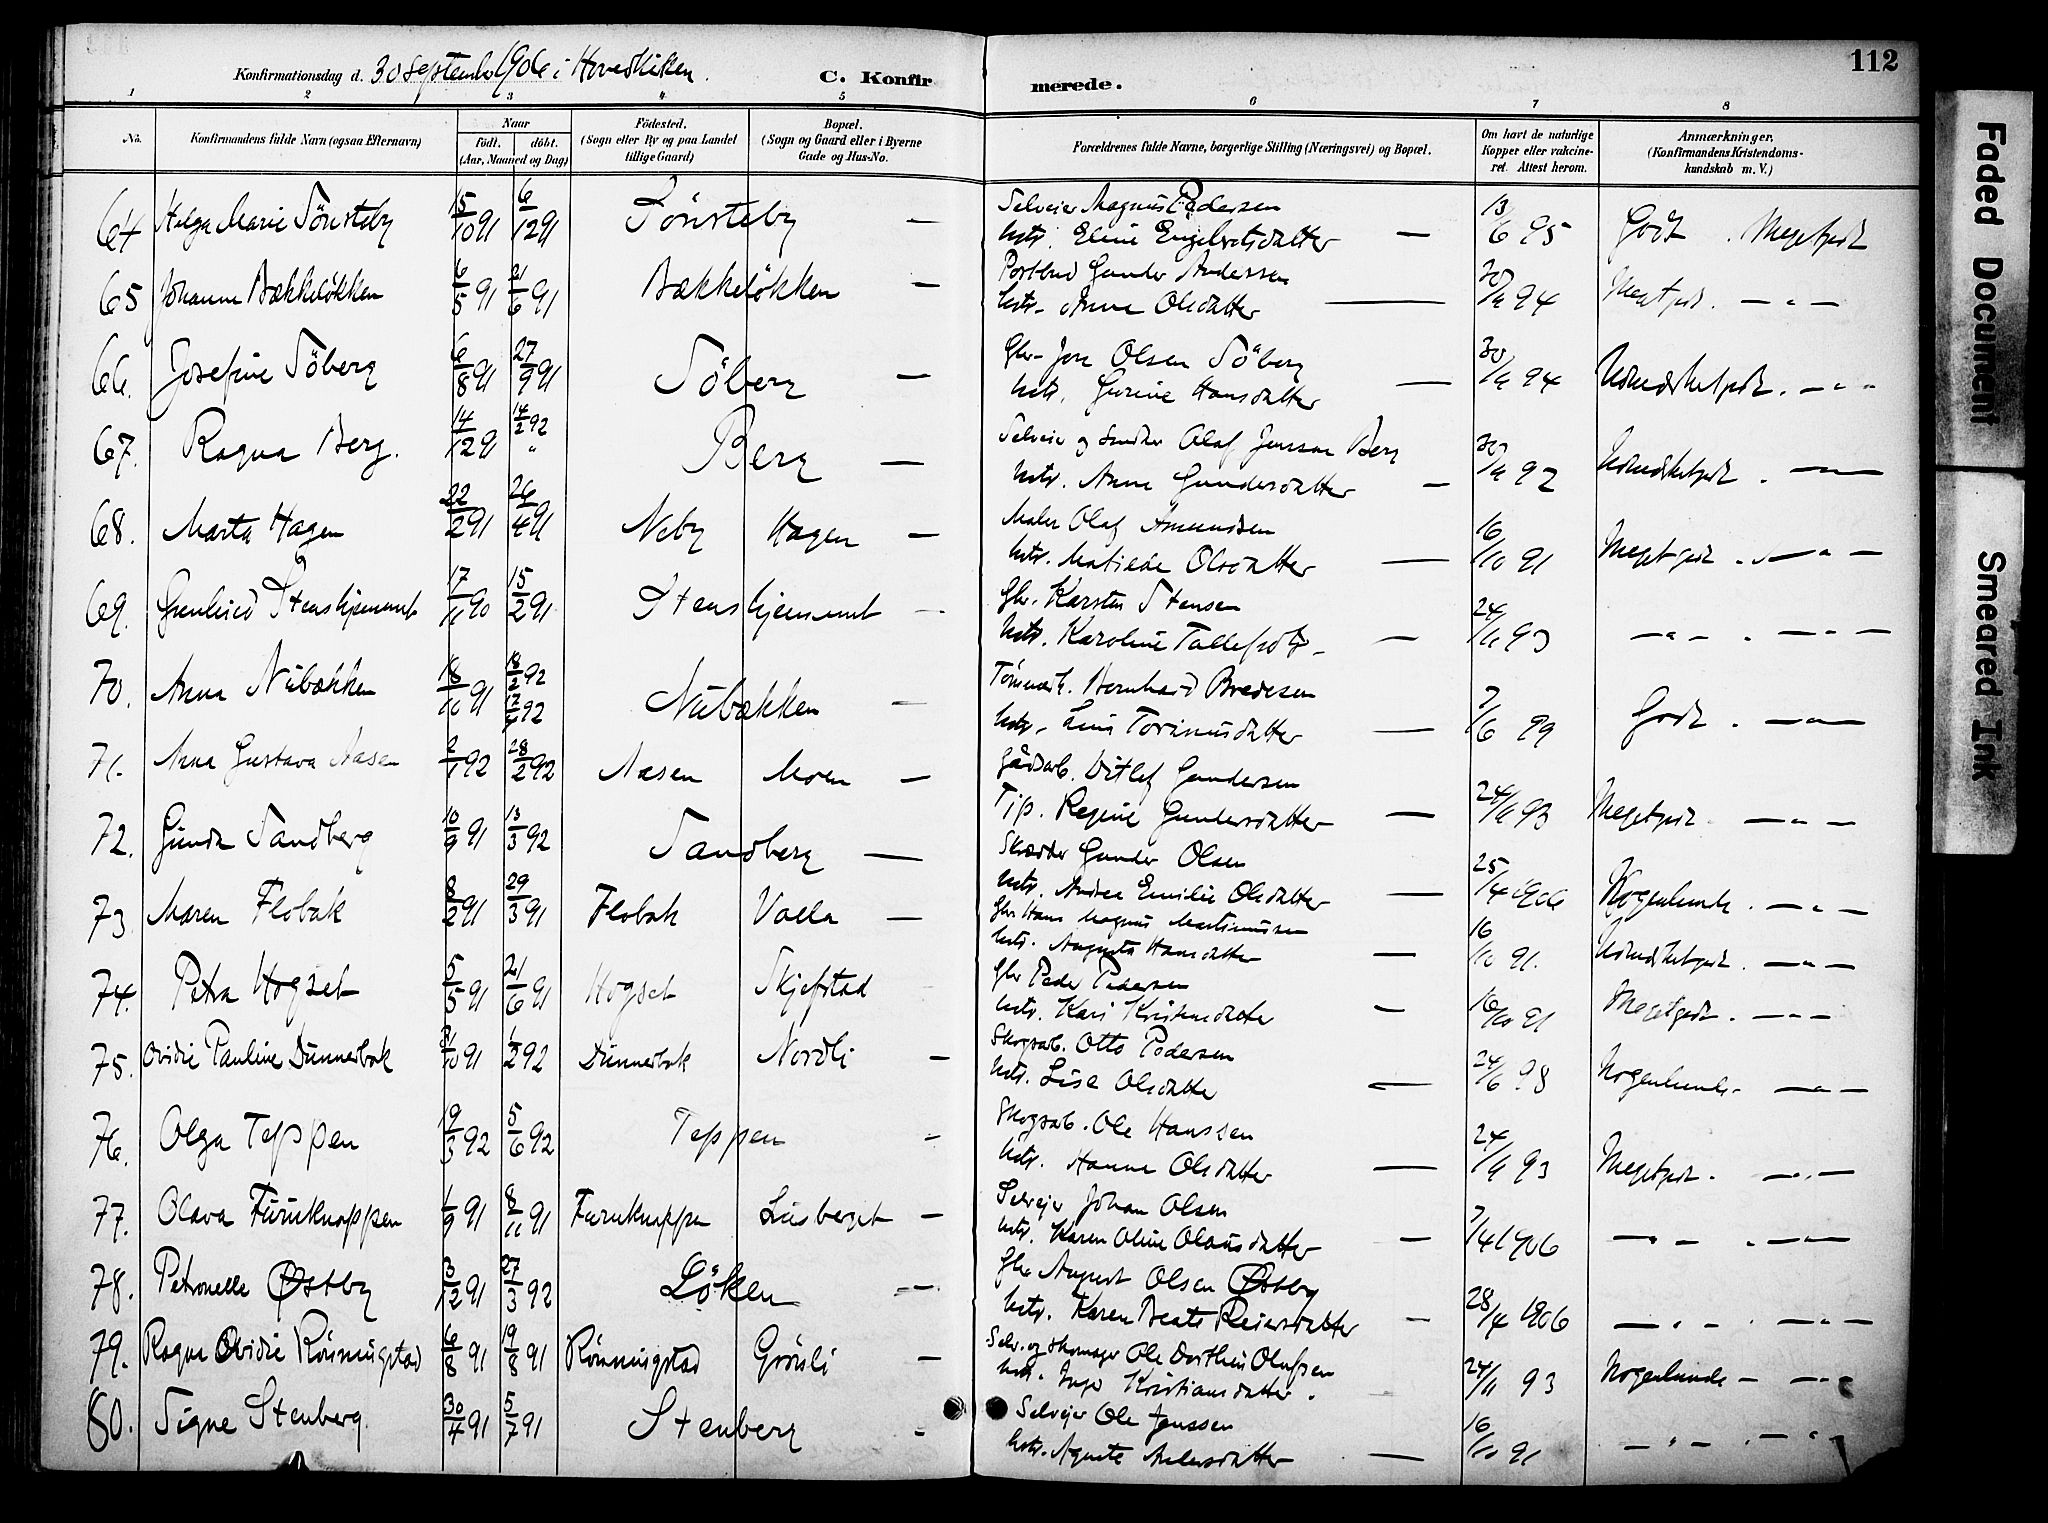 Konfirmationsdag d. 30 September 1906 i Hovedkirken.
C. Konfirmerede.
112
1 2 3 4 5 6 7 8
No. Konfirmandens fulde Navn (ogsaa Efternavn) Naar født. døbt. (Aar, Maaned og Dag) Fødested. (Sogn eller By og paa Landet tillige Gaard) Bopæl. (Sogn og Gaard eller i Byerne Gade og Hus-No. Forældrenes fulde Navne, borgerlige Stilling (Næringsvei) og Bopæl. Om havt de naturlige Kopper eller vakcineret. Attest herom. Anmærkninger. (Konfirmandens Kristendomskundskab m. V.)
64 Helga Marie Tönsteby 15/10 91 6/12 91 Tönsteby — Selveier Magnus Pedersen
Hstr. Eline Engebretsdatter — 13/6 95 Godt . Megetgodt
65 Johanne Bækkeløkken 6/5 91 21/6 91 Bækkeløkken — Postbud Gunder Andersen
Hstr. Anne Olsdatter — 30/11 94 Megetgodt . — „ —
66. Josefine Söberg 6/8 91 27/9 91 Söberg — Gbr. Jon Olsen Söberg
Hstr. Gurine Hansdatter — 30/11 94 Udmerketgodt . — „ „
67. Ragna Berg. 14/12 91 14/2 92 „ Berg — Selveier og Snedker Olaf Jensen Berg
Hstr. Anne Gundersdatter — 30/11 92 Udmerketgodt . — „ —
68. Marta Hagen 22/2 91 26/4 91 Neby Hagen — Maler Olaf Amundsen
Hstr. Matilde Olsdatter — 16/10 91 Megetgodt . — „ —
69. Gunhild Stenshjemmet 17/11 90 15/2 91 Stenshjemmet — Gbr. Karsten Stensen
Hstr. Karoline Tollefsdtr — 24/11 93 — „ — . — „ —
70. Anna Nübækken 18/10 91 18/2 92 17/4 92 Nübækken — Tömmerh. Bernhard Bredesen
Hstr. Lina Torinusdatter — 7/6 99 Godt . — „ —
71. Anna Gustava Næsen 2/1 92 28/2 92 Næsen Moen — Gårdsarb. Ditlef Gundersen
Tjp. Regine Gundersdatter — 24/11 93 Megetgodt . — „ —
72. Gunda Sandberg 10/9 91 13/3 92 Sandberg — Skrædder Gunder Olsen
Hstr. Andrea Emilie Olsdatter — 25/4 1906 Nogenlunde . — „ —
73 Maren Flobak 8/2 91 29/3 91 Flobak Valla — Gbr Hans Magnus Martinusen
Hstr. Augusta Hansdatter — 16/10 91. Udmerketgodt . — „ —
74. Petra Hogset 5/5 91 21/6 91 Hogset Skjefstad Gbr Peder Pedersen
Hstr. Kari Kristensdatter — 16/10 91 Megetgodt . — „ —
75. Ovidie Pauline Dünnerbak 31/10 91 1/2 92 Dünnerbak Nordli — Skogsarb. Otto Pedersen
Hstr. Lise Olsdatter — 24/6 98 Nogenlunde . — „ —
76. Olga Teppen 19/3 92 5/6 92 Teppen — Skogsarb. Ole Hanssen
Hstr. Hanne Olsdatter — 24/11 93 Megetgodt . — „ —
77. Olava Furuknappen 1/9 91 8/11 91 Furuknappen Lusberget — Selveier Johan Olsen
Hstr. Karen Oline Olausdatter — 7/4 1906 — „ — . — „ —
78. Petronelle Østby 3/12 91 27/3 92 Löken — Gbr August Olsen Østby
Hstr. Karen Beate Reiersdatter — 28/4 1906 — „ — . — „ —
79. Ragna Ovidie Rönningstad 6/8 91 19/8 91 Rönningstad Grönli — Selv. og Skomager Ole Dorthius Olufsen
Hstr. Inger Kristiansdatter . 24/11 93 Nogenlunde — — „ —
80. Signe Stenberg. 30/4 91 5/7 91 Stenberg — Selveier Ole Jenssen
Hstr. Agnete Andersdatter — 16/10 91 — „ — . — „ —
Faded Document
Smeared Ink